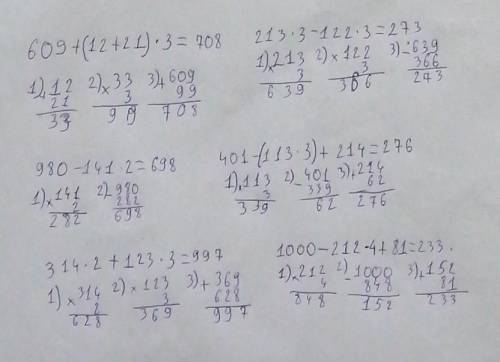 609+(12+21)·3=708
1) 12 2) 33 3) 609
+ 21 × 3 + 99
33 99 708
213·3-122·3=273
1) 213 2) 122 3) 639
× 3 × 3 - 366
639 366 273
980-141·2=698
1) 141 2) 980
× 2 - 282
282 698
401-(113·3)+214=276
1) 113 2) 401 3) 214
× 3 - 339 + 62
339 62 276
314·2+123·3=997
1) 314 2) 123 3) 369
× 2 × 3 + 628
628 369 997
1000-212·4+81=233.
1) 212 2) 1000 3) 152
× 4 - 848 + 81
848 152 233